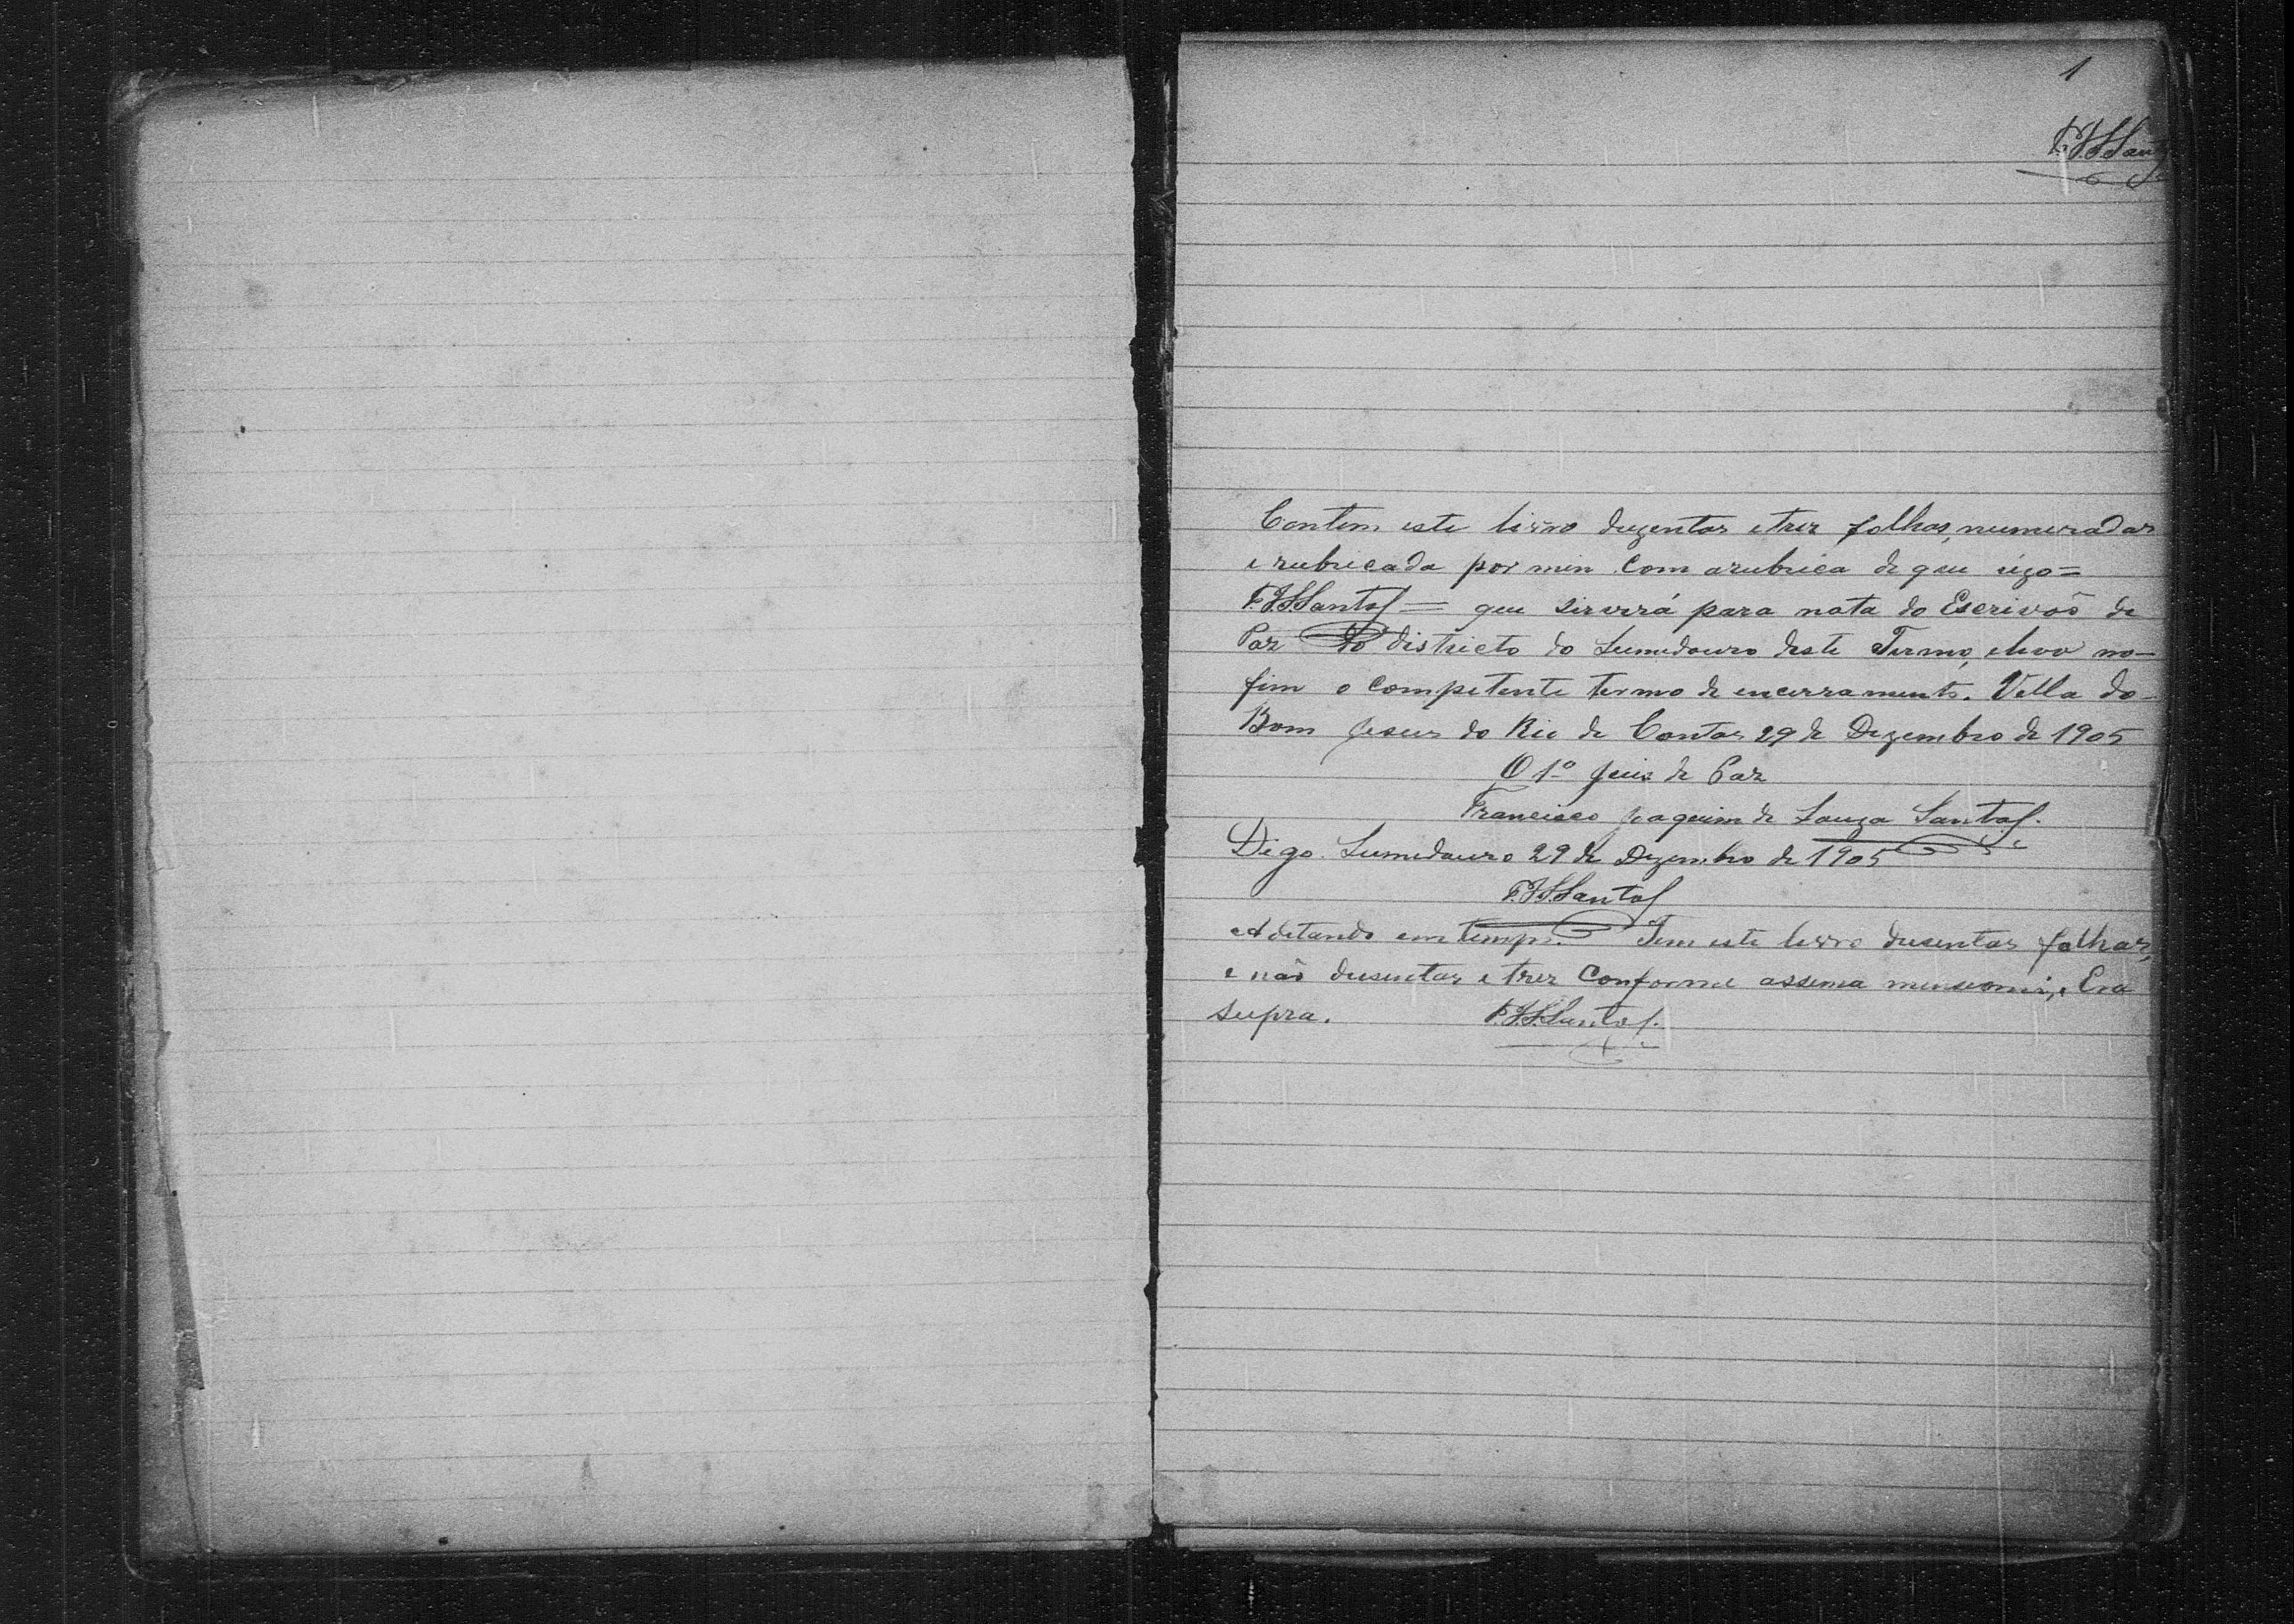 1
F.J.S.Santos
Contem este livro duzentas e trez folhas, numeradas
e rubricada por mim com a rubrica de que uzo=
F.J.S.Santos= que servirá para nota do Escrivão de
Paz do districto do Sumedouro deste Termo, e leva no-
fim o competente termo de encerramento. Villa do-
Bom Jesus do Rio de Contas 29 de Dezembro de 1905
O 1º Juis de Paz
Francisco Joaquim de Souza Santos.
Digo. Sumedouro 29 de Dezembro de 1905
F.J.S.Santos
Aditando em tempo. Tem este livro dusentas folhas,
e não dusentas e trez conforme assema mensionei, Era
supra. F.J.S.Santos.